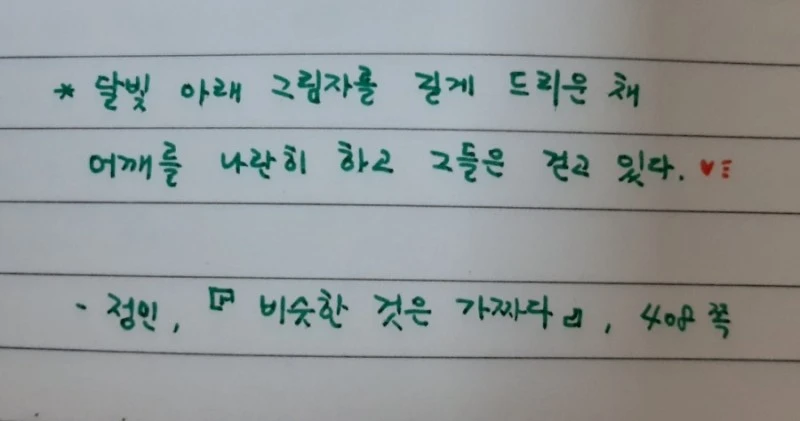 * 달빛 아래 그림자를 길게 드리운 채
어깨를 나란히 하고 그들은 걷고 있다. ♥
- 정인, 『비슷한 것은 가짜다』, 408쪽